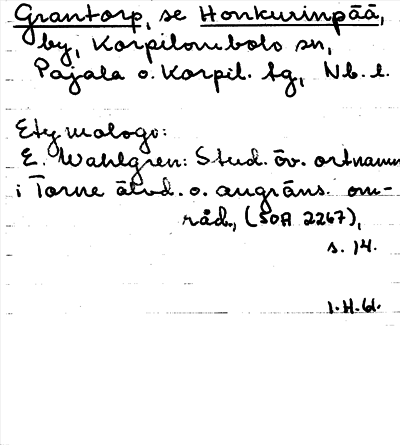 Grantorp, se Honkurinpää,
by, Korpilombolo sn,
Pajala o. Korpil. tg, Nb. l.
Etymologo:
E. Wahlgren: Stud. öv. ortnamn
i Torne älvd. o. angräns. om-
råd., (SOA 2267),
s. 14.
I.H.61.